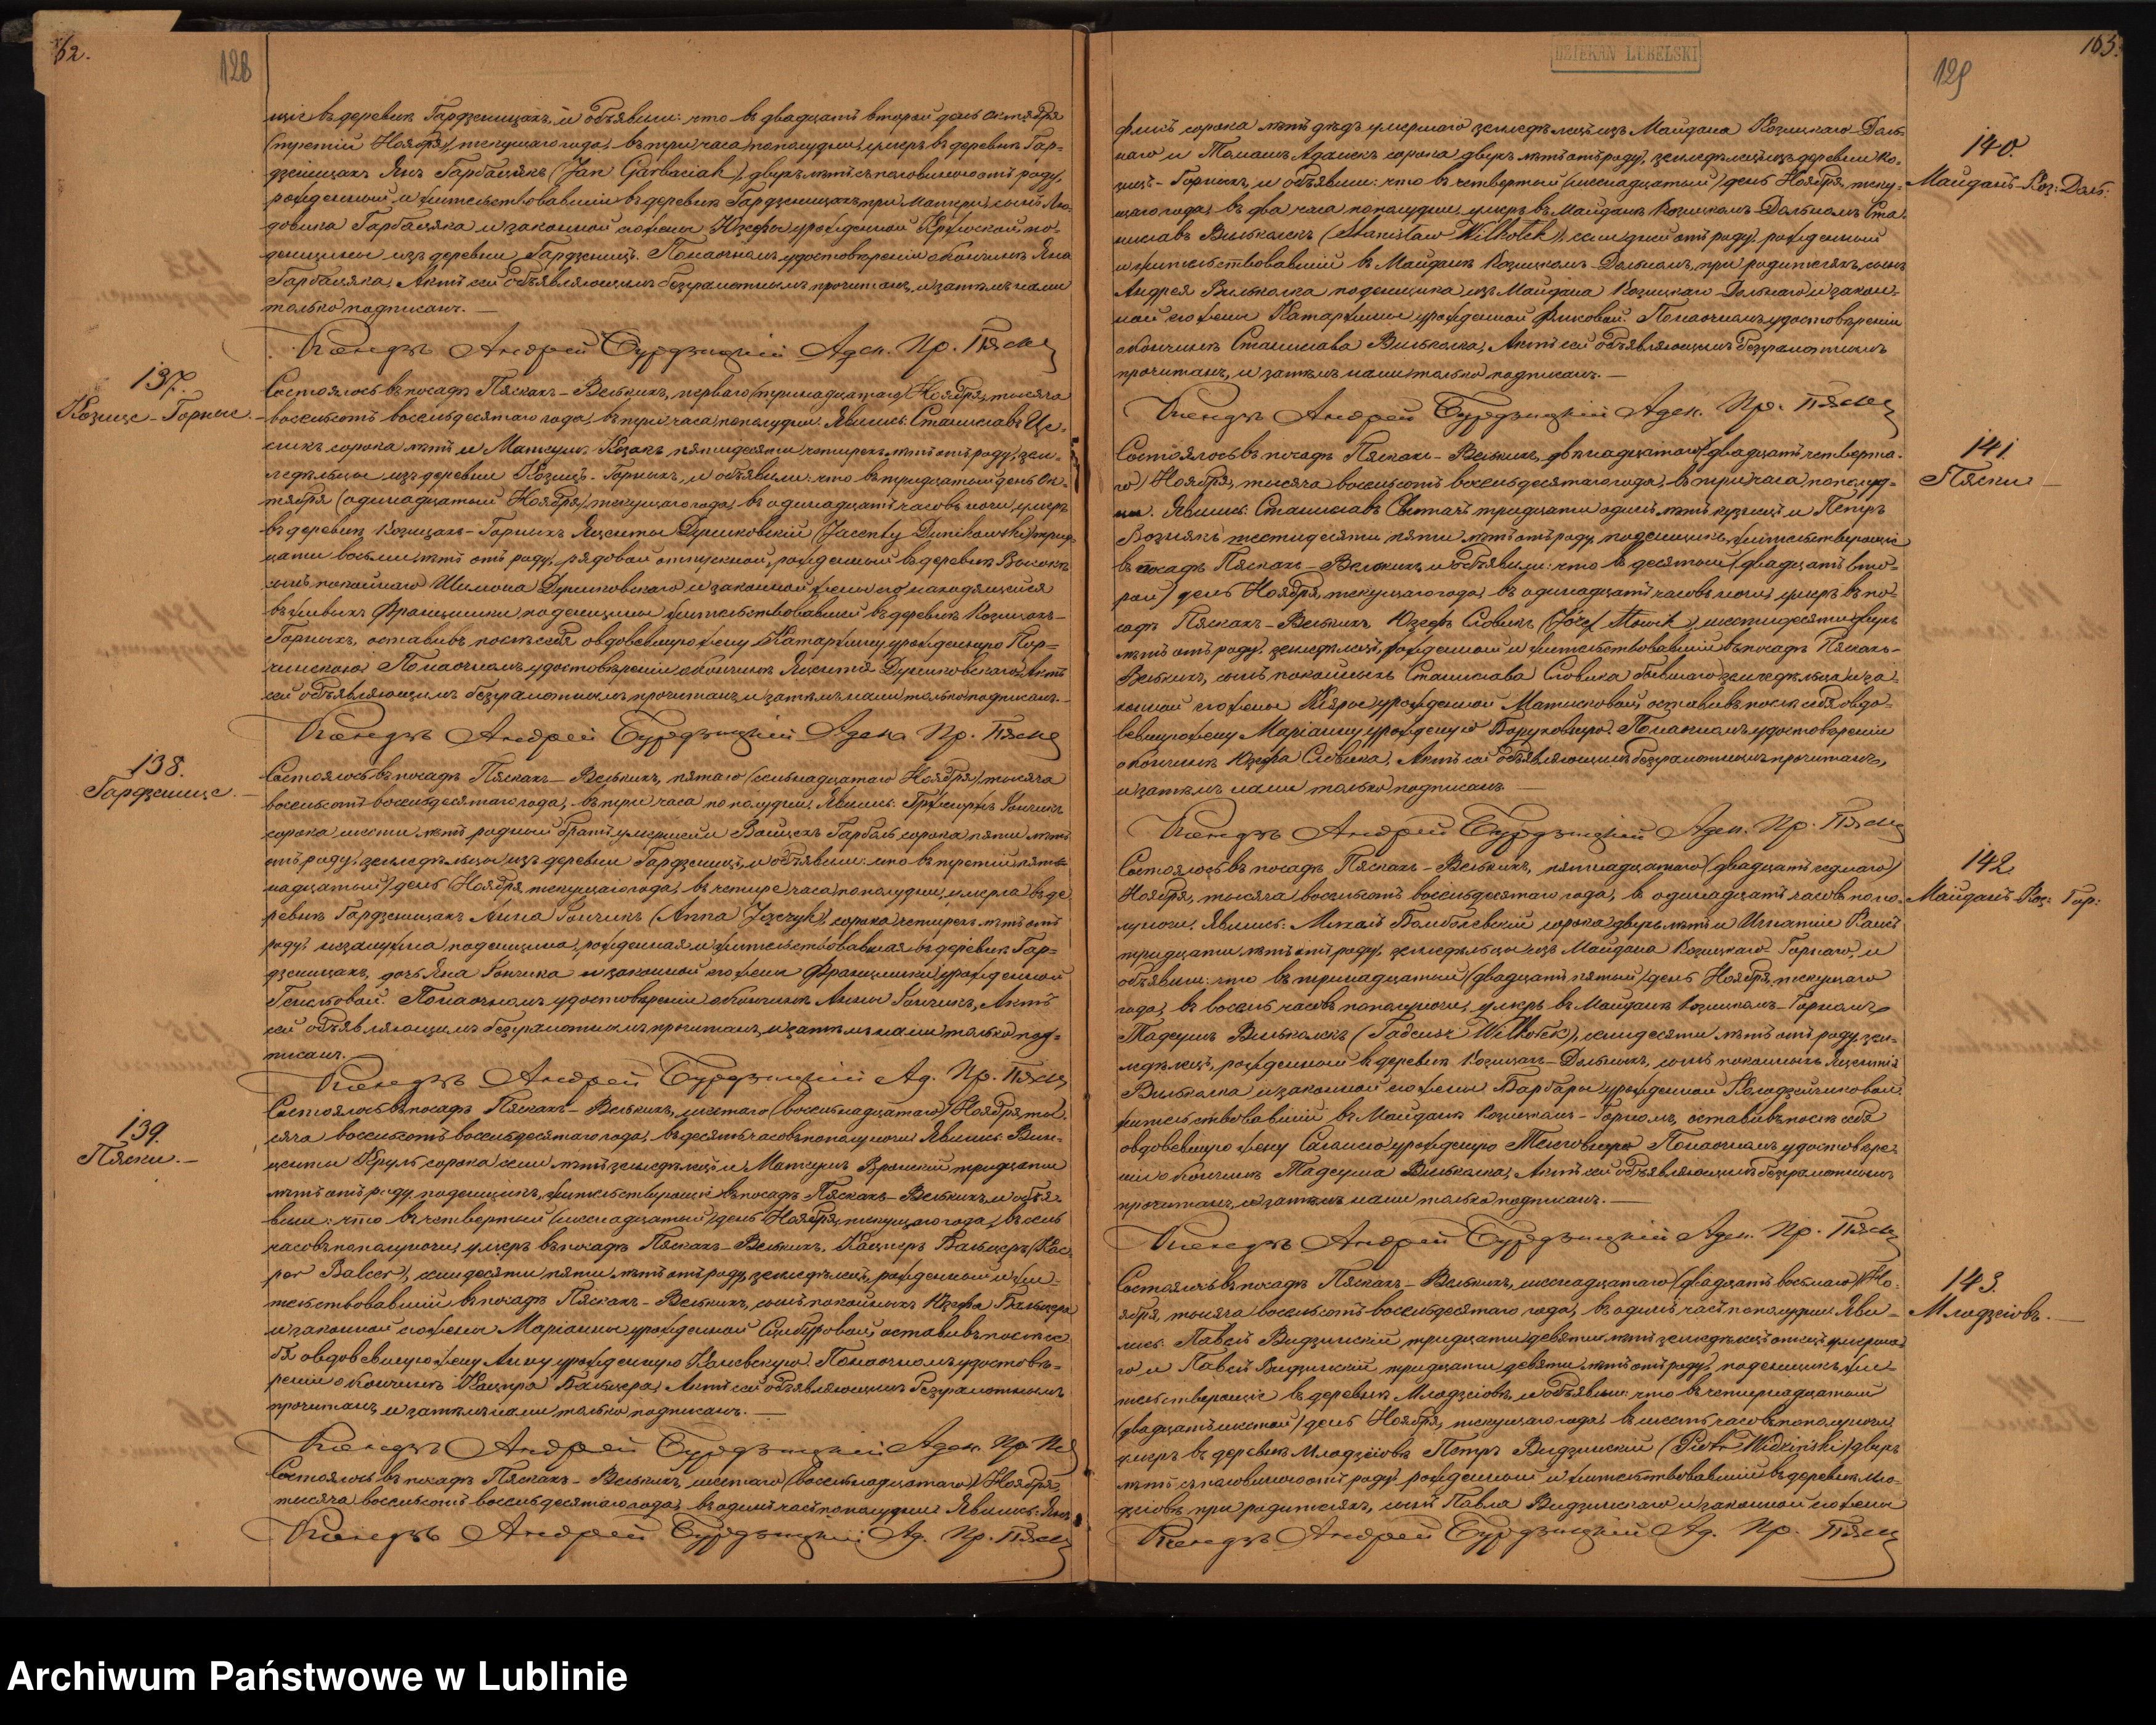 62.
128
щіе въ деревнѣ Гардзеницахъ, и объявили: что въ двадцать второй день Октября
(третій Ноября) текущаго года, въ три часа пополудни, умеръ въ деревнѣ Гар-
дзеницахъ Янъ Гарбацякъ (Jan Garbaciak), двухъ лѣтъ съ половиною отъ роду,
рожденный и жительствовавшій въ деревнѣ Гардзеницахъ при Матери, сынъ Лю-
довика Гарбацяка и законной его жены Юзефы урожденной по-
денщицы изъ деревни Гардзеницъ. По наочномъ удостовѣреніи о кончинѣ Яна
Гарбацяка, Актъ сей объявляющимъ безграмотнымъ прочитанъ, и затѣмъ нами
только подписанъ. —
Ксендзъ Андрей Адм. Пр. Пяски
137.
Козице-Горные.
Состоялось въ посадѣ Пяскахъ-Велькихъ, перваго (тринадцатаго) Ноября, тысяча
восемьсотъ восемьдесятаго года, въ три часа пополудни. Явились: Станиславъ
сорока лѣтъ и Матеушъ Козакъ пятидесяти четырехъ лѣтъ отъ роду, зем-
ледѣльцы изъ деревни Козицъ-Горныхъ, и объявили: что въ тридцатый день Ок-
тября (одинадцатый Ноября) текущаго года, въ одинадцать часовъ ночи, умеръ
въ деревнѣ Козицахъ-Горныхъ Яценты Дуниковскій (Jacenty Dunikowski) трид-
цати восьми лѣтъ отъ роду, рядовой отпускной, рожденный въ деревнѣ
сынъ покойнаго Шимона Дуниковскаго и законной жены его находящейся
въ живыхъ Францишки поденщицы жительствовавшій въ деревнѣ Козицахъ-
Горныхъ, оставивъ послѣ себя овдовѣвшую жену Катаржину урожденную
По наочномъ удостовѣреніи о кончинѣ Яцентія Дуниковскаго, Актъ
сей объявляющимъ безграмотнымъ прочитанъ и затѣмъ нами только подписанъ. —
Ксендзъ Андрей Адм. Пр. Пяски
138.
Гардзенице. —
Состоялось въ посадѣ Пяскахъ-Велькихъ, пятаго (семьнадцатаго Ноября) тысяча
восемьсотъ восемьдесятаго года, въ три часа пополудни, Явились:
сорока шести лѣтъ родной братъ умершей и Войцехъ Гарбаль сорока пяти лѣтъ
отъ роду, земледѣльцы изъ деревни Гардзеницъ, и объявили: что въ третій (пят-
надцатый) день Ноября текущаго года, въ четыре часа пополудни, умерла въ де-
ревнѣ Гардзеницахъ Анна (Anna), сорока четырехъ лѣтъ отъ
роду, незамужна поденщица, рожденная и жительствовавшая въ деревнѣ Гар-
дзеницахъ, дочь Яна и законной его жены Францишки урожденной
По наочномъ удостовѣреніи о кончинѣ Анны Актъ
сей объявляющимъ безграмотнымъ прочитанъ, и затѣмъ нами только под-
писанъ.
Ксендзъ Андрей Ад. Пр. Пяски
139.
Пяски. —
Состоялось въ посадѣ Пяскахъ-Велькихъ, шестаго (восемьнадцатаго) Ноября, ты-
сяча восемьсотъ восемьдесятаго года, въ десять часовъ пополуночи. Явились: Вин-
центы Круль сорока семи лѣтъ земледѣлецъ и Матеушъ тридцати
лѣтъ отъ роду, поденщикъ, жительствующіе въ посадѣ Пяскахъ-Велькихъ, и объя-
вили: что въ четвертый (шеснадцатый) день Ноября, текущаго года, въ семь
часовъ пополуночи, умеръ въ посадѣ Пяскахъ-Велькихъ, Кацперъ Бальцеръ (Kac-
per Balcer), семидесяти пяти лѣтъ отъ роду, земледѣлецъ, рожденный и жи-
тельствовавшій въ посадѣ Пяскахъ-Велькихъ, сынъ покойныхъ Юзефа Бальцера
и законной его жены Маріанны урожденной оставивъ послѣ се-
бя овдовѣвшую жену Анну урожденную По наочномъ удостовѣ-
реніи о кончинѣ Кацпра Бальцера, Актъ сей объявляющимъ безграмотнымъ
прочитанъ, и затѣмъ нами только подписанъ. —
Ксендзъ Андрей Адм. Пр. Пяс
Состоялось въ посадѣ Пяскахъ-Велькихъ, шестаго (восемьнадцатаго) Ноября,
тысяча восемьсотъ восемьдесятаго года, въ одинъ часъ пополудни Явились:
Ксендзъ Андрей Ад. Пр. Пяски
DZIEKAN LUBELSKI
163.
129
140.
Майданъ-Коз: Доль:
сорока лѣтъ дядъ умершаго земледѣлецъ изъ Майдана Козицкаго-Доль-
наго и Томашъ Адамекъ сорока двухъ лѣтъ отъ роду, земледѣлецъ изъ деревни Ко-
зицъ-Горныхъ, и объявили: что въ четвертый (шеснадцатый) день Ноября, теку-
щаго года, въ два часа пополудни, умеръ въ Майданѣ Козицкомъ-Дольномъ Ста-
ниславъ Вилколекъ (Stanisław Wilkołek), семи дней отъ роду, рожденный
и жительствовавшій въ Майданѣ Козицкомъ-Дольномъ, при родителяхъ, сынъ
Андрея Вилколка поденщика изъ Майдана Козицкаго-Дольнаго и закон-
ной его жены Катаржины урожденной По наочномъ удостовѣреніи
о кончинѣ Станислава Вилколка, Актъ сей объявляющимъ безграмотнымъ
прочитанъ, и затѣмъ нами только подписанъ. —
Ксендзъ Андрей Адм. Пр. Пяски
141.
Пяски —
Состоялось въ посадѣ Пяскахъ-Велькихъ, двѣнадцатаго (двадцать четверта-
го) Ноября, тысяча восемьсотъ восемьдесятаго года, въ три часа пополуд-
ни. Явились: Станиславъ тридцати одинъ лѣтъ кузнецъ и Петръ
Вознякъ шестидесяти пяти лѣтъ отъ роду, поденщикъ, жительствующіе
въ посадѣ Пяскахъ-Велькихъ, и объявили: что въ десятый (двадцать вто-
рой) день Ноября, текущаго года, въ одинадцать часовъ ночи, умеръ въ по-
садѣ Пяскахъ-Велькихъ Юзефъ Словикъ (Józef Słowik), шестидесяти двухъ
лѣтъ отъ роду, земледѣлецъ, рожденный и жительствовавшій въ посадѣ Пяскахъ-
Велькихъ, сынъ покойныхъ Станислава Словика бывшаго земледѣльца и за-
конной его жены урожденной оставивъ послѣ себя овдо-
вевшую жену Маріанну урожденную По наочномъ удостовѣреніи
о кончинѣ Юзефа Словика, Актъ сей объявляющимъ безграмотнымъ прочитанъ,
и затѣмъ нами только подписанъ —
Ксендзъ Андрей Адм. Пр. Пяски
142.
Майданъ-Коз: Гор:
Состоялось въ посадѣ Пяскахъ-Велькихъ, пятнадцатаго (двадцать седмаго)
Ноября, тысяча восемьсотъ восемьдесятаго года, въ одинадцать часовъ попо-
луночи, Явились: Михалъ сорока двухъ лѣтъ и Игнатіи
тридцати лѣтъ отъ роду, земледѣльцы изъ Майдана Козицкаго-Горнаго, и
объявили: что въ тринадцатый (двадцать пятый) день Ноября, текущаго
года, въ восемь часовъ пополуночи, умеръ въ Майданѣ Козицкомъ-Горномъ
Тадеушъ Вилколекъ (Tadeusz Wilkołek), семидесяти лѣтъ отъ роду, зем-
ледѣлецъ, рожденный въ деревнѣ Козицахъ-Дольныхъ, сынъ покойныхъ Яцентія
Вилколка и законной его жены Барбары урожденной
жительствовавшій въ Майданѣ Козицкомъ-Горномъ, оставивъ послѣ себя
овдовевшую жену урожденную По наочномъ удостовѣре-
ніи о кончинѣ Тадеуша Вилколка, Актъ сей объявляющимъ безграмотнымъ
прочитанъ, и затѣмъ нами только подписанъ. —
Ксендзъ Андрей Адм. Пр. Пяски
143.
Млодзеіовъ. —
Состоялось въ посадѣ Пяскахъ-Велькихъ, шеснадцатаго (двадцать восьмаго) Но-
ября, тысяча восемьсотъ восемьдесятаго года, въ одинъ часъ пополудни. Яви-
лись: Павелъ Видзинскій тридцати девяти лѣтъ земледѣлецъ отецъ умерша-
го и Павелъ Видзинскій тридцати девяти лѣтъ отъ роду, поденщикъ, жи-
тельствующіе въ деревнѣ Млодзеіовѣ, и объявили: что въ четырнадцатый
(двадцать шестой) день Ноября, текущаго года, въ шесть часовъ пополуночи,
умеръ въ деревнѣ Млодзеіовѣ Петръ Видзинскій (Piotr Widziński) двухъ
лѣтъ съ половиною отъ роду, рожденный и жительствовавшій въ деревнѣ Мло-
дзеіовѣ при родителяхъ, сынъ Павла Видзинскаго и законной его жены
Ксендзъ Андрей Ад. Пр. Пяски
Archiwum Państwowe w Lublinie